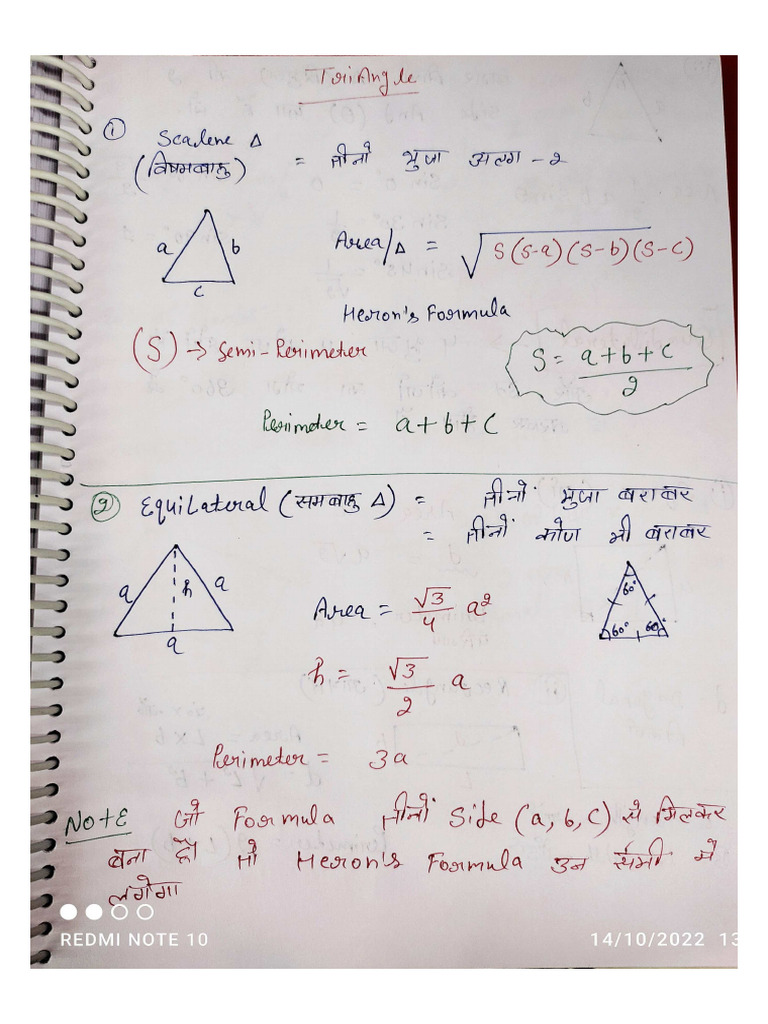 TriAngle
① Scalene Δ
(विषमबाहु) = तीनों भुजा अलग-२
a b c
Area/Δ = √S(S-a)(S-b)(S-c)
Heron's Formula
(S) → Semi-Perimeter
S = a+b+c/2
Perimeter = a+b+c
② Equilateral (समबाहु Δ) = तीनों भुजा बराबर
= तीनों कोण भी बराबर
a h a a
60° 60° 60°
Area = √3/4 a²
h = √3/2 a
Perimeter = 3a
NotE जो Formula तीनों Side (a, b, c) से मिलकर
बना हो तो Heron's Formula उन सभी में
लगेगा
REDMI NOTE 10
14/10/2022 13